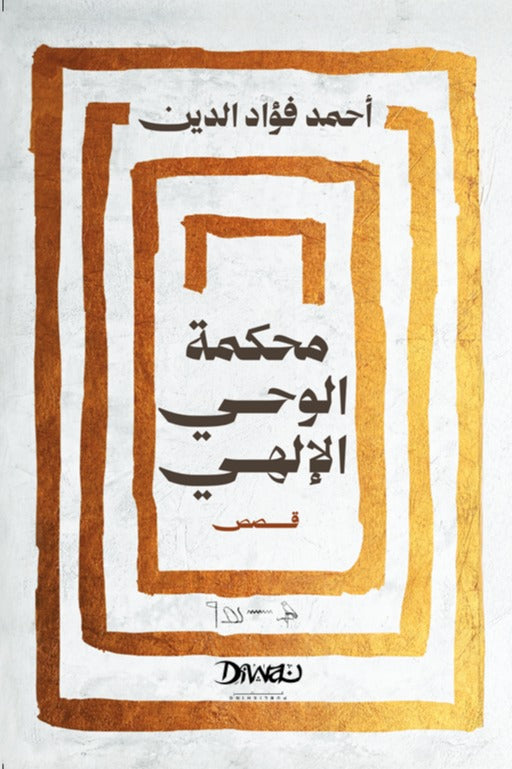 أحمد فؤاد الدين
محكمة
الوحي
الإلهي
قصص
DiWAN
PUBLISHING